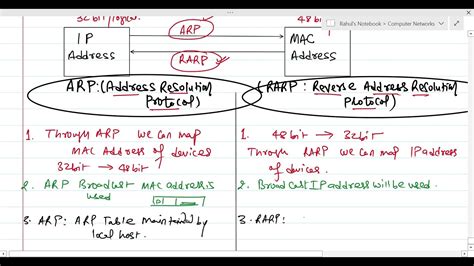 Rahul's Notebook > Computer Networks
32bit/logical
48bit
IP Address
ARP
RARP
MAC Address
ARP:(Address Resolution Protocol)
(RARP: Reverse Address Resolution Protocol)
1. Through ARP we can map
MAC Address of devices
32bit → 48bit
2. ARP Broadcast MAC address is
used
3. ARP: ARP Table maintained by
local host.
1. 48bit → 32bit
Through RARP we can map IP address
of devices.
2. Broadcast IP address will be used.
3. RARP: